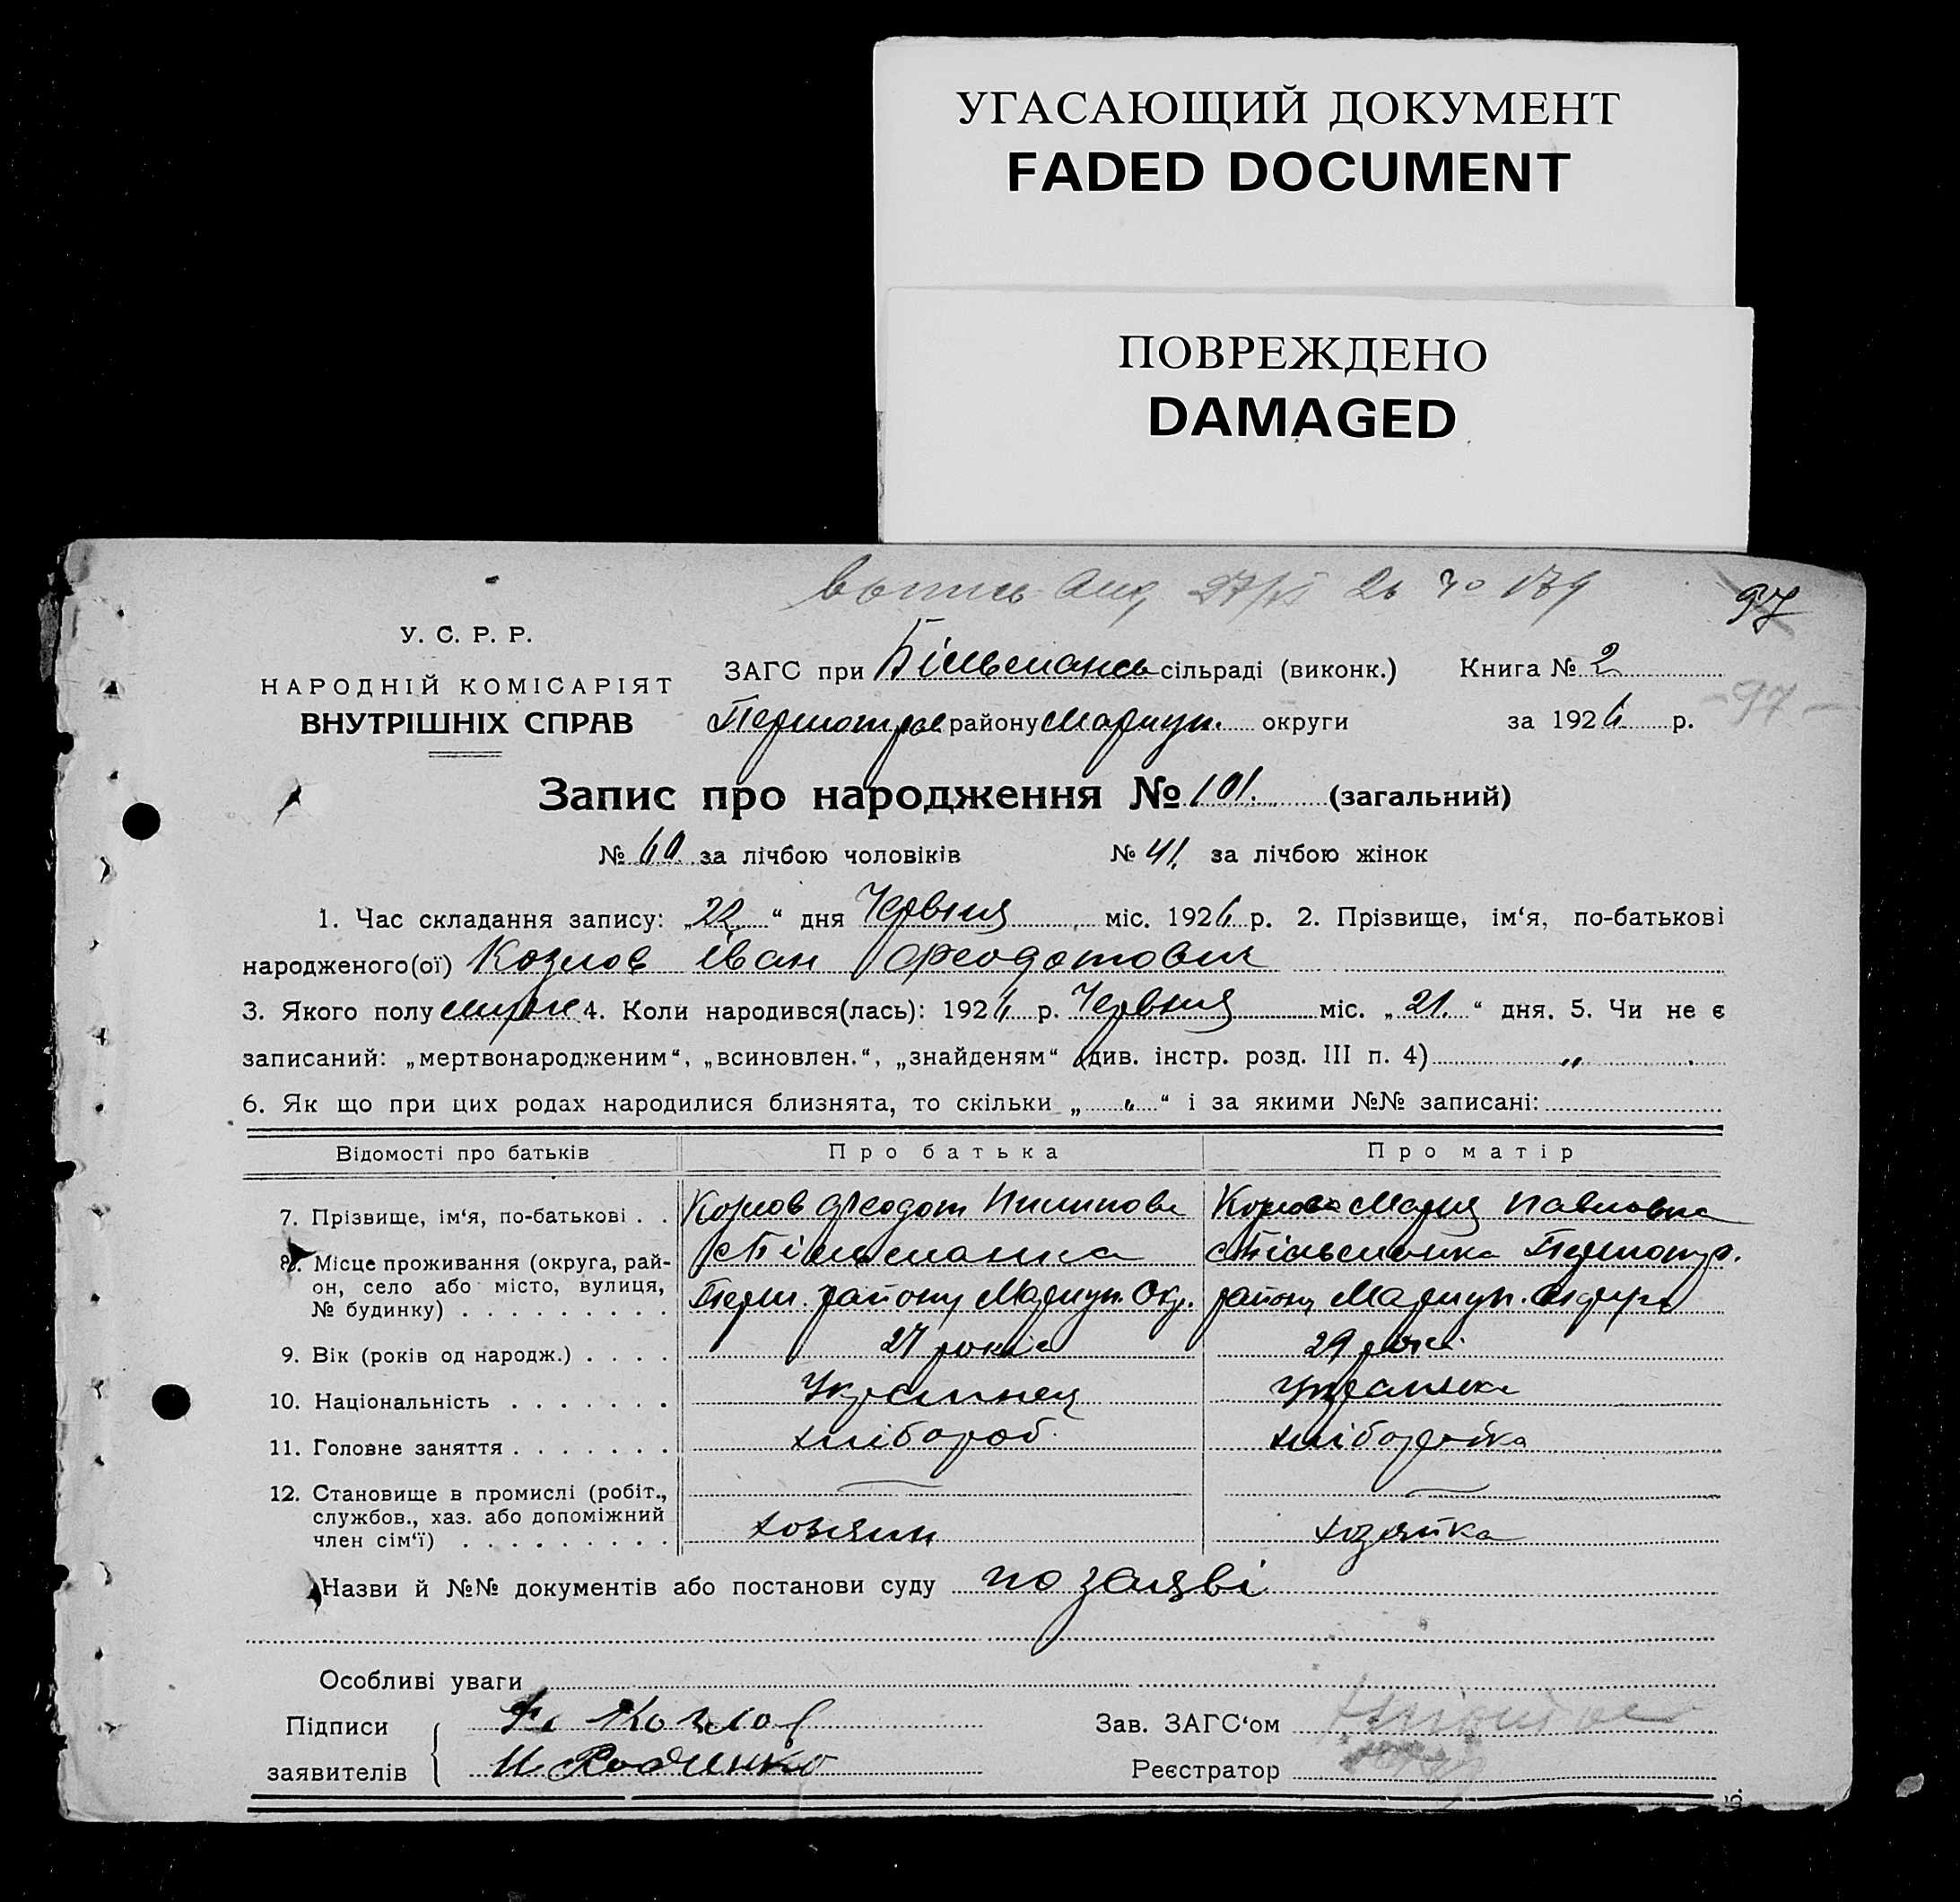 УГАСАЮЩИЙ ДОКУМЕНТ
FADED DOCUMENT
ПОВРЕЖДЕНО
DAMAGED
97
У. С. Р. Р.
НАРОДНІЙ КОМІСАРІЯТ
ВНУТРІШНІХ СПРАВ
ЗАГС при Більманск сільраді (виконк.) Книга № 2
району Мариуп. округи за 1926 р.
-97-
Запис про народження № 101. (загальний)
№ 60 за лічбою чоловіків № 41. за лічбою жінок
1. Час складання запису: „22“ дня Червня міс. 1926 р. 2. Прізвище, ім‘я, по-батькові
народженого(ої) Козлов Іван Феодотович
3. Якого полу 4. Коли народився(лась): 1926 р. Червня міс. „21.“ дня. 5. Чи не є
записаний: „мертвонародженим“, „всиновлен.“, „знайденям“ (див. інстр. розд. III п. 4) „
6. Як що при цих родах народилися близнята, то скільки „ „ “ і за якими №№ записані:
Відомості про батьків Про батька Про матір
7. Прізвище, ім‘я, по-батькові . . Козлов Феодот Козлова Мария Павловна
8. Місце проживання (округа, рай-
он, село або місто, вулиця,
№ будинку) . . . . . . . . . с Більманка с Більманка
Перш. району Мариуп. Окр. району Мариуп.
9. Вік (років од народж.) . . . . 27 років 29 років
10. Національність . . . . . . . Украинец Украинка
11. Головне заняття . . . . . . . хлібороб хліборобка
12. Становище в промислі (робіт.,
службов., хаз. або допоміжний
член сім‘ї) . . . . . . . . . хозяин хозяйка
Назви й №№ документів або постанови суду по заяві
Особливі уваги
Підписи Козлов Зав. ЗАГС‘ом
заявителів И Реєстратор